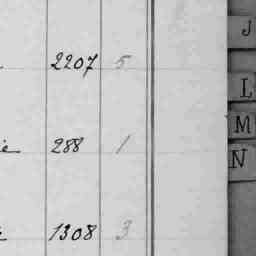 2207 5
288 1
1308 3
J
L
M
N